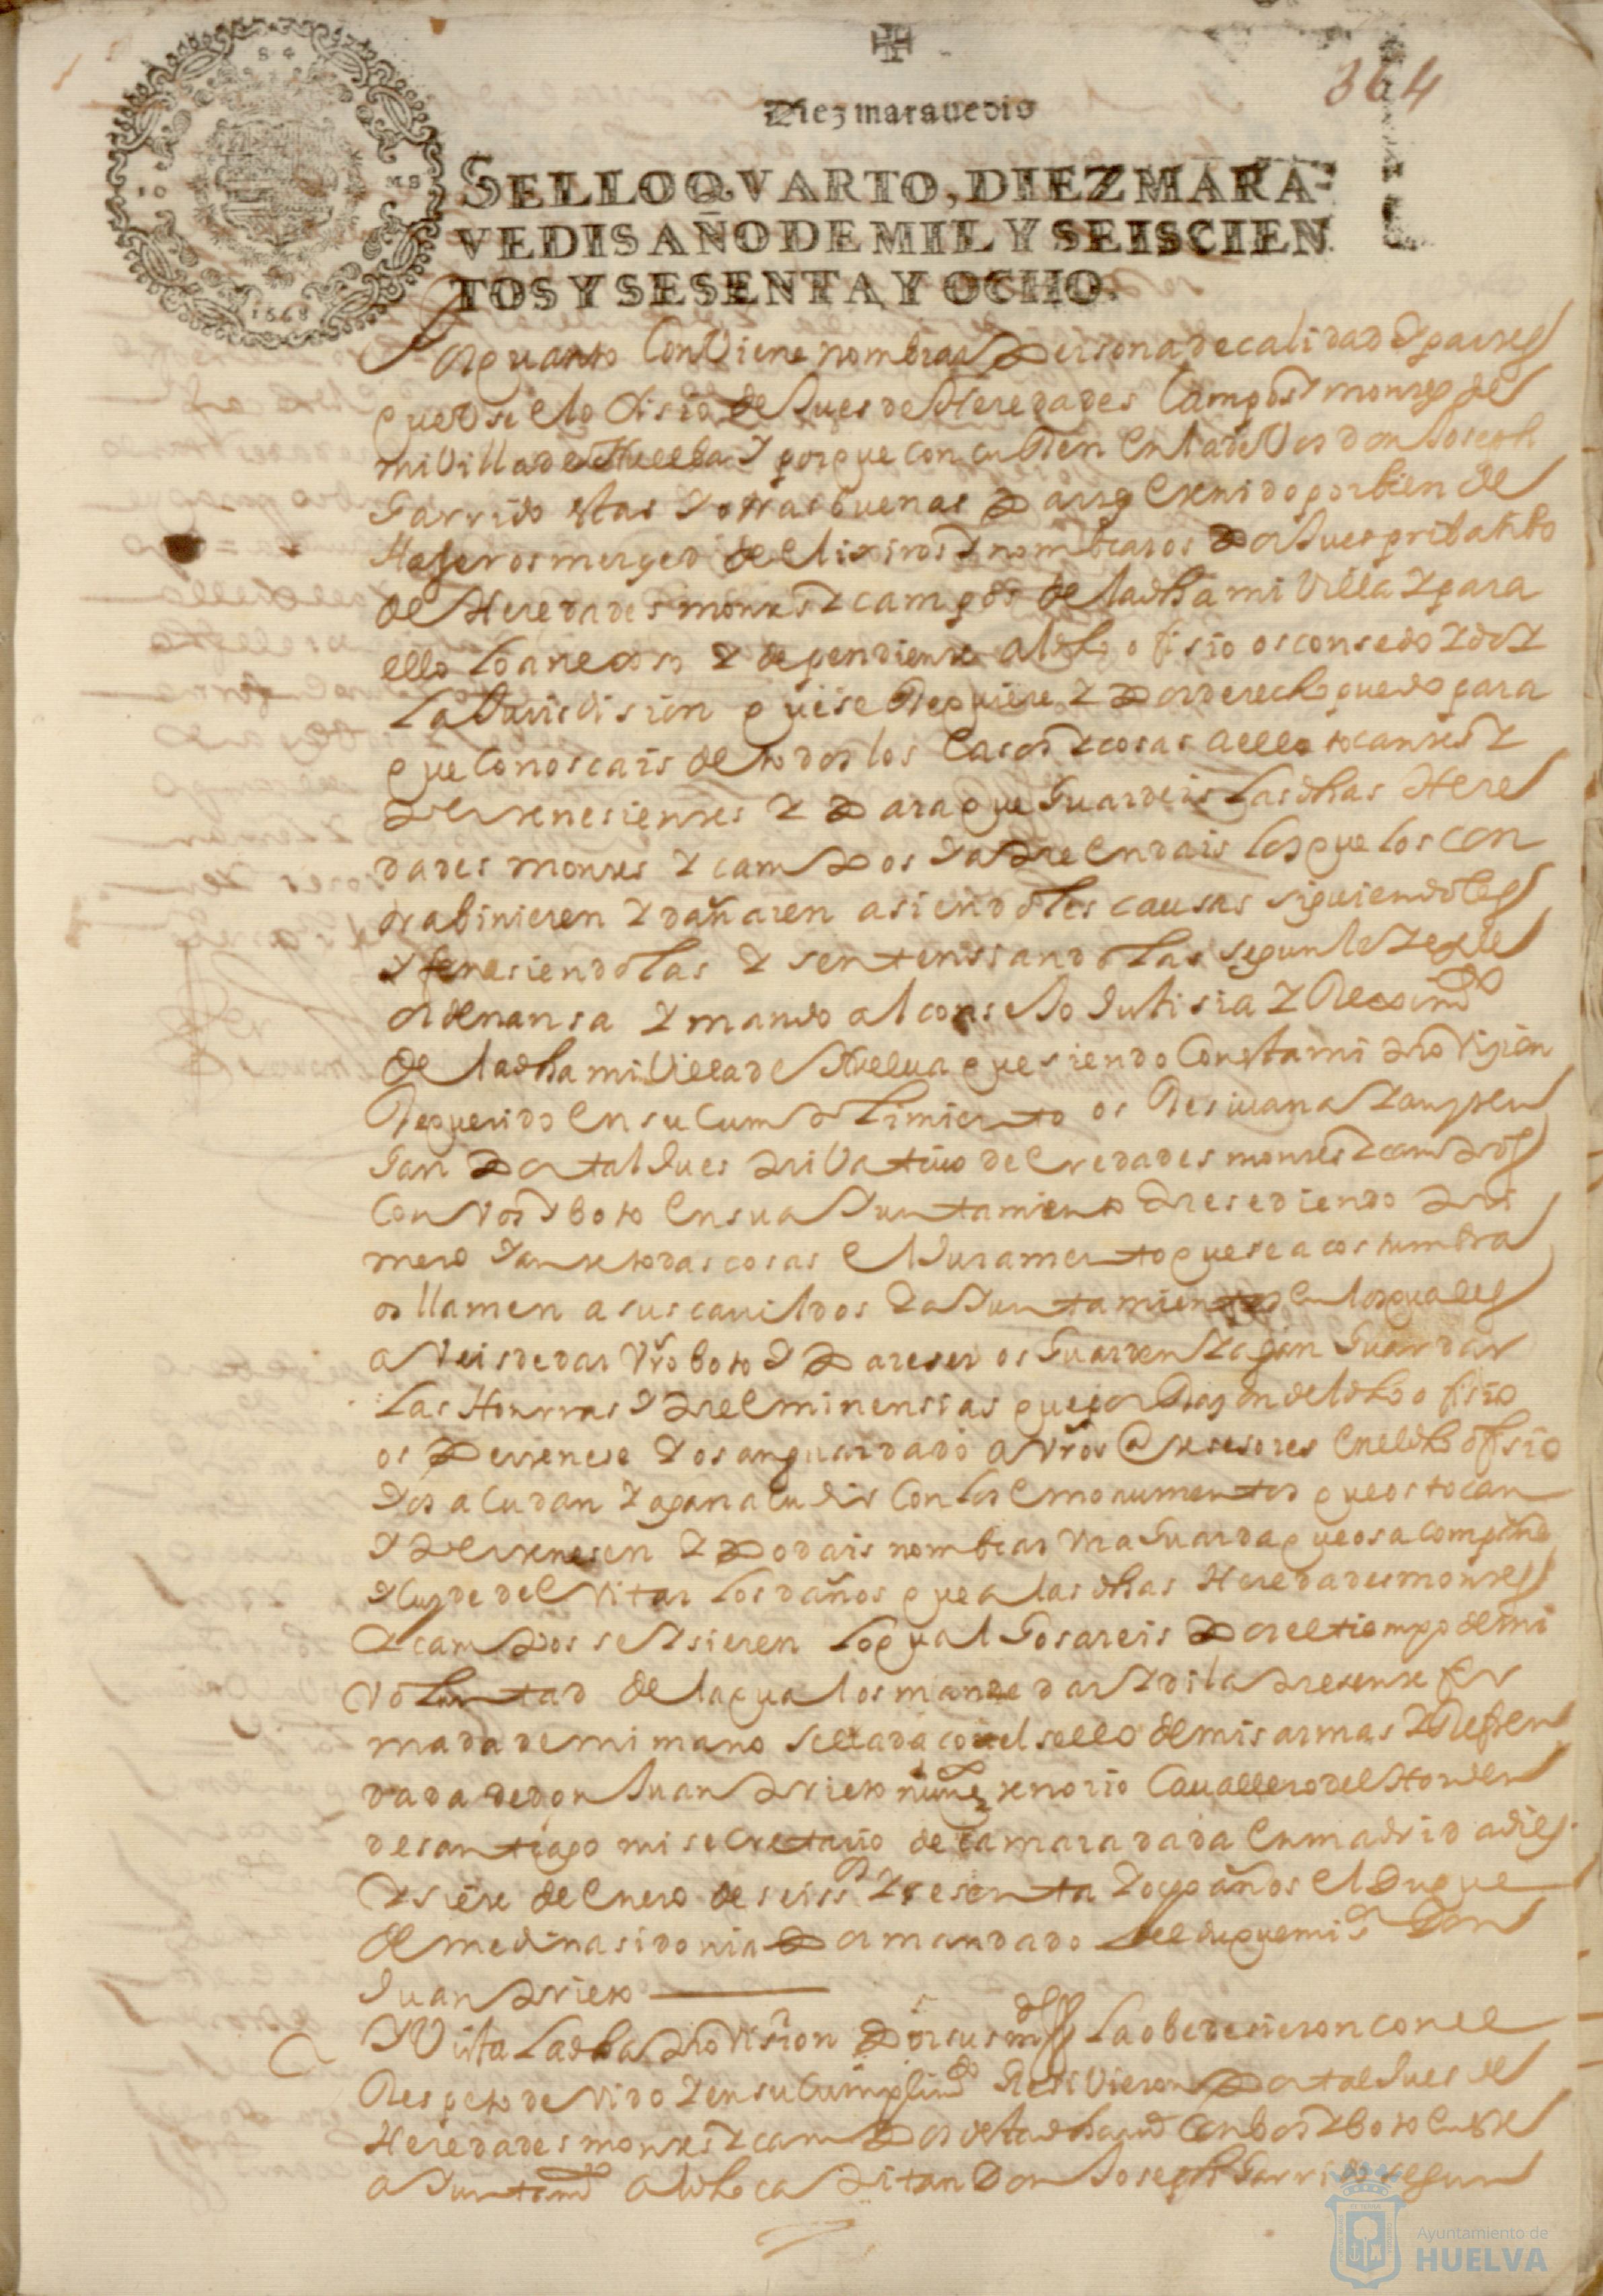 364
Diez maravedis
SELLO QVARTO, DIEZ MARA-
VEDIS AÑO DE MIL Y SEISCIEN
TOS Y SESENTA, Y OCHO.
1668
Por quanto Conviene nombrar Persona de calidad y partes
que use el ofisio de Jues de Heredades Campos y montes de
mi villa de Huelba y porque concurren en la de Vos don Joseph
Garrido estas y otras buenas partes e tenido por bien de
Haseros merged de elixiros y nombraros por Jues pribatibo
de Heredades montes y campos de la dha mi Villa y para
ello lo anecso y dependiente al dho ofisio os consedo y doy
La Jurisdision que se Requiere y por derecho puedo para
que Conoscais de todos los Casos y cosas a ello tocantes y
pertenesientes y Para que Guardeis las dhas Here
dades montes y campos y a Prendais los que los con
trabinieren y dañaren asiendoles causas siguiendoles
y fenesiendolas y sentensiandolas segun ley e
ordenansa y mando al consejo Justisia y Reximdo
de la dha mi Villa de Huelva que siendo Con esta mi provision
Requerido en su Cumplimiento os Resivan y
gan por tal Jues privativo de eredades montes y campos
Con vos y boto en su a Juntamiento presediendo pri
mero y ante todas cosas el Juramento que se acostumbra
os llamen a sus cavildos y a Juntamientos en los quales
aveis de dar vro boto y pareser os Guarden y agan Guardar
las Honrras y preeminensias que por Razon del dho ofisio
os pertenese y os an guardado a vros antesesores en el dho ofisio
y os acudan y agan acudir Con los emonumentos que os tocan
y pertenesen y Podais nombrar una Guarda que os acompañe
y cuyde de evitar los daños que a las dhas Heredades montes
y campos se ysieren lo qual Gosareis por el tiempo de mi
voluntad de la qual os mande dar y di la presente fir
mada de mi mano sellada con el sello de mis armas y Refren
dada de don Juan prieto nuñez tenorio Cavallero del Horden
de santiago mi secretario de camara dada en madrid a dies
y siete de Enero de seiss y sesenta y ocho años el Duque
de medinasidonia Por mandado del duque mi sr Don
Juan prieto
y Vista la dha provision por sus mds la obedesieron con el
Respeto devido y en su Cumplimdo Resivieron por tal Jues de
Heredades montes y campos de la dha con bos y boto en este
a Juntamdo al dho capitan Don Joseph Garrido segun
Ayuntamiento de
HUELVA